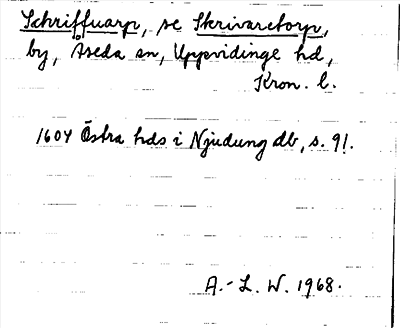 Schriffuarp, se Skrivaretorp,
by, Åseda sn, Uppvidinge hd,
Kron. l.
1604 Östra hds i Njudung db, s. 91.
A.-L. W. 1968.